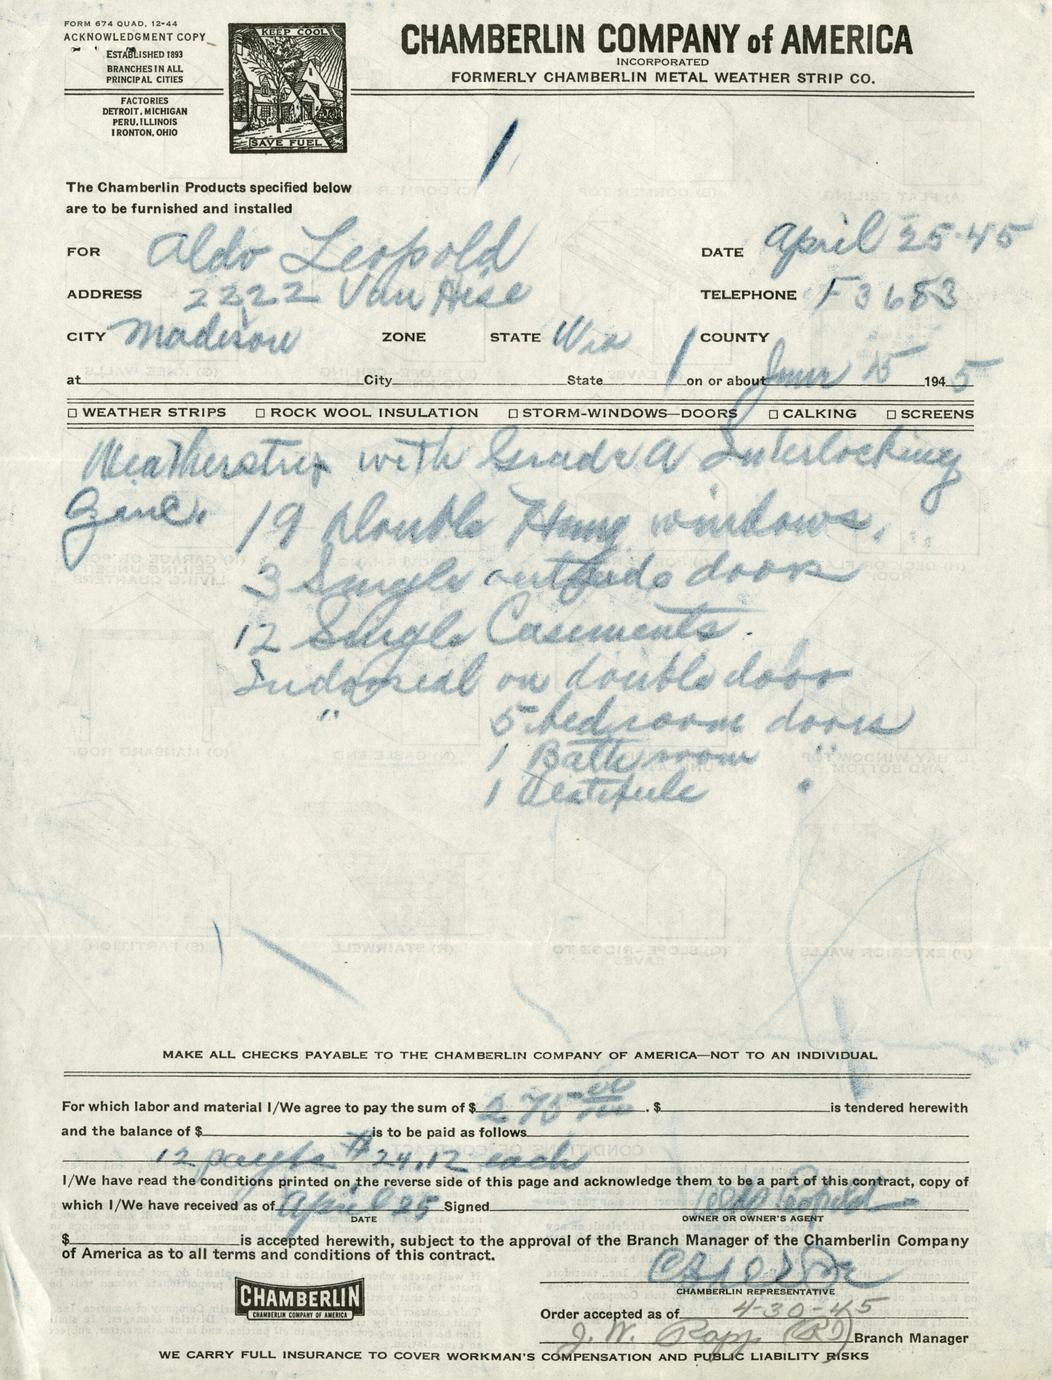 FORM 674 QUAD, 12-44
ACKNOWLEDGMENT COPY
ESTABLISHED 1893
BRANCHES IN ALL
PRINCIPAL CITIES
FACTORIES
DETROIT, MICHIGAN
PERU, ILLINOIS
IRONTON, OHIO
KEEP COOL
SAVE FUEL
CHAMBERLIN COMPANY of AMERICA
INCORPORATED
FORMERLY CHAMBERLIN METAL WEATHER STRIP CO.
The Chamberlin Products specified below
are to be furnished and installed
FOR Aldo Leopold DATE April 25-45
ADDRESS 2222 Van Hise TELEPHONE F3683
CITY Madison ZONE STATE Wis COUNTY
at City State on or about June 15 1945
☐ WEATHER STRIPS ☐ ROCK WOOL INSULATION ☐ STORM-WINDOWS—DOORS ☐ CALKING ☐ SCREENS
Weatherstrip with Grade A Interlocking
Zinc.
19 Double Hung windows.
3 Single outside doors
12 Single Casements.
Indorseal on double door
" 5 bedroom doors
1 Bathroom "
1 Vestibule "
MAKE ALL CHECKS PAYABLE TO THE CHAMBERLIN COMPANY OF AMERICA—NOT TO AN INDIVIDUAL
For which labor and material I/We agree to pay the sum of $ 275 00/100. $ is tendered herewith
and the balance of $ is to be paid as follows
12 paymts $24.12 each
I/We have read the conditions printed on the reverse side of this page and acknowledge them to be a part of this contract, copy of
which I/We have received as of April 25 Signed Aldo Leopold
DATE OWNER OR OWNER'S AGENT
$ is accepted herewith, subject to the approval of the Branch Manager of the Chamberlin Company
of America as to all terms and conditions of this contract.
CHAMBERLIN
CHAMBERLIN COMPANY OF AMERICA
CHAMBERLIN REPRESENTATIVE
Order accepted as of 4-30-45
J. W. Rapp (RJ) Branch Manager
WE CARRY FULL INSURANCE TO COVER WORKMAN'S COMPENSATION AND PUBLIC LIABILITY RISKS